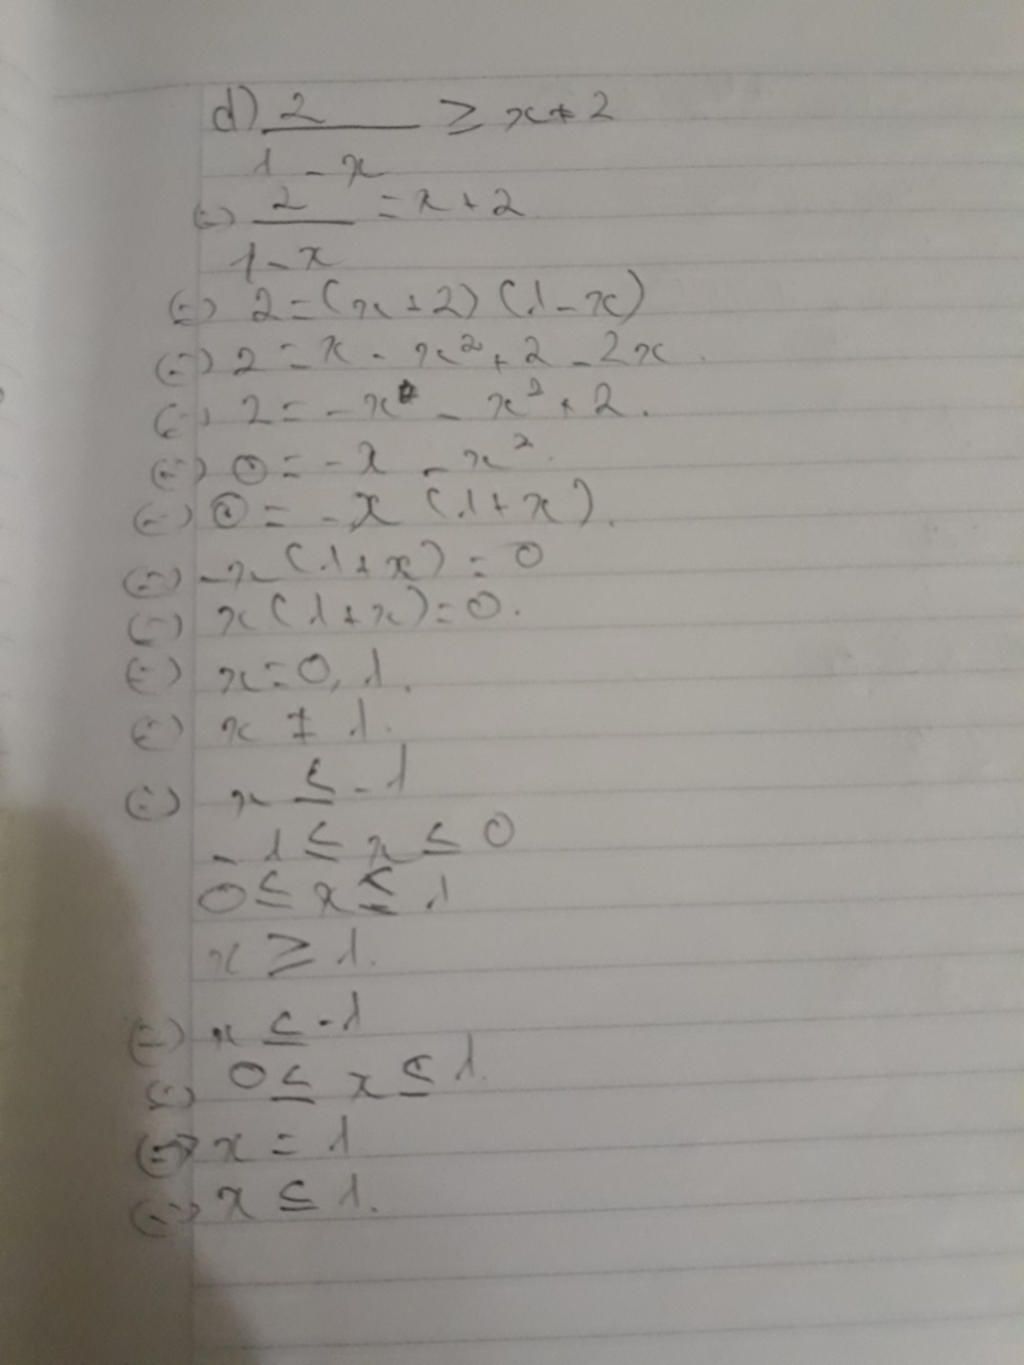 d) 2/(1-x) ≥ x+2
(=) 2/(1-x) = x+2
(=) 2=(x+2)(1-x)
(=) 2=x-x²+2-2x.
(=) 2=-x-x²+2.
(=) 0=-x-x².
(=) 0=-x(1+x).
(=) -x(1+x)=0
(=) x(1+x)=0.
(=) x=0,1.
(=) x≠1.
(=) x≤-1
-1≤x≤0
0≤x≤1
x≥1.
(=) x≤-1
(=) 0≤x≤1.
(=) x=1
(=) x≤1.